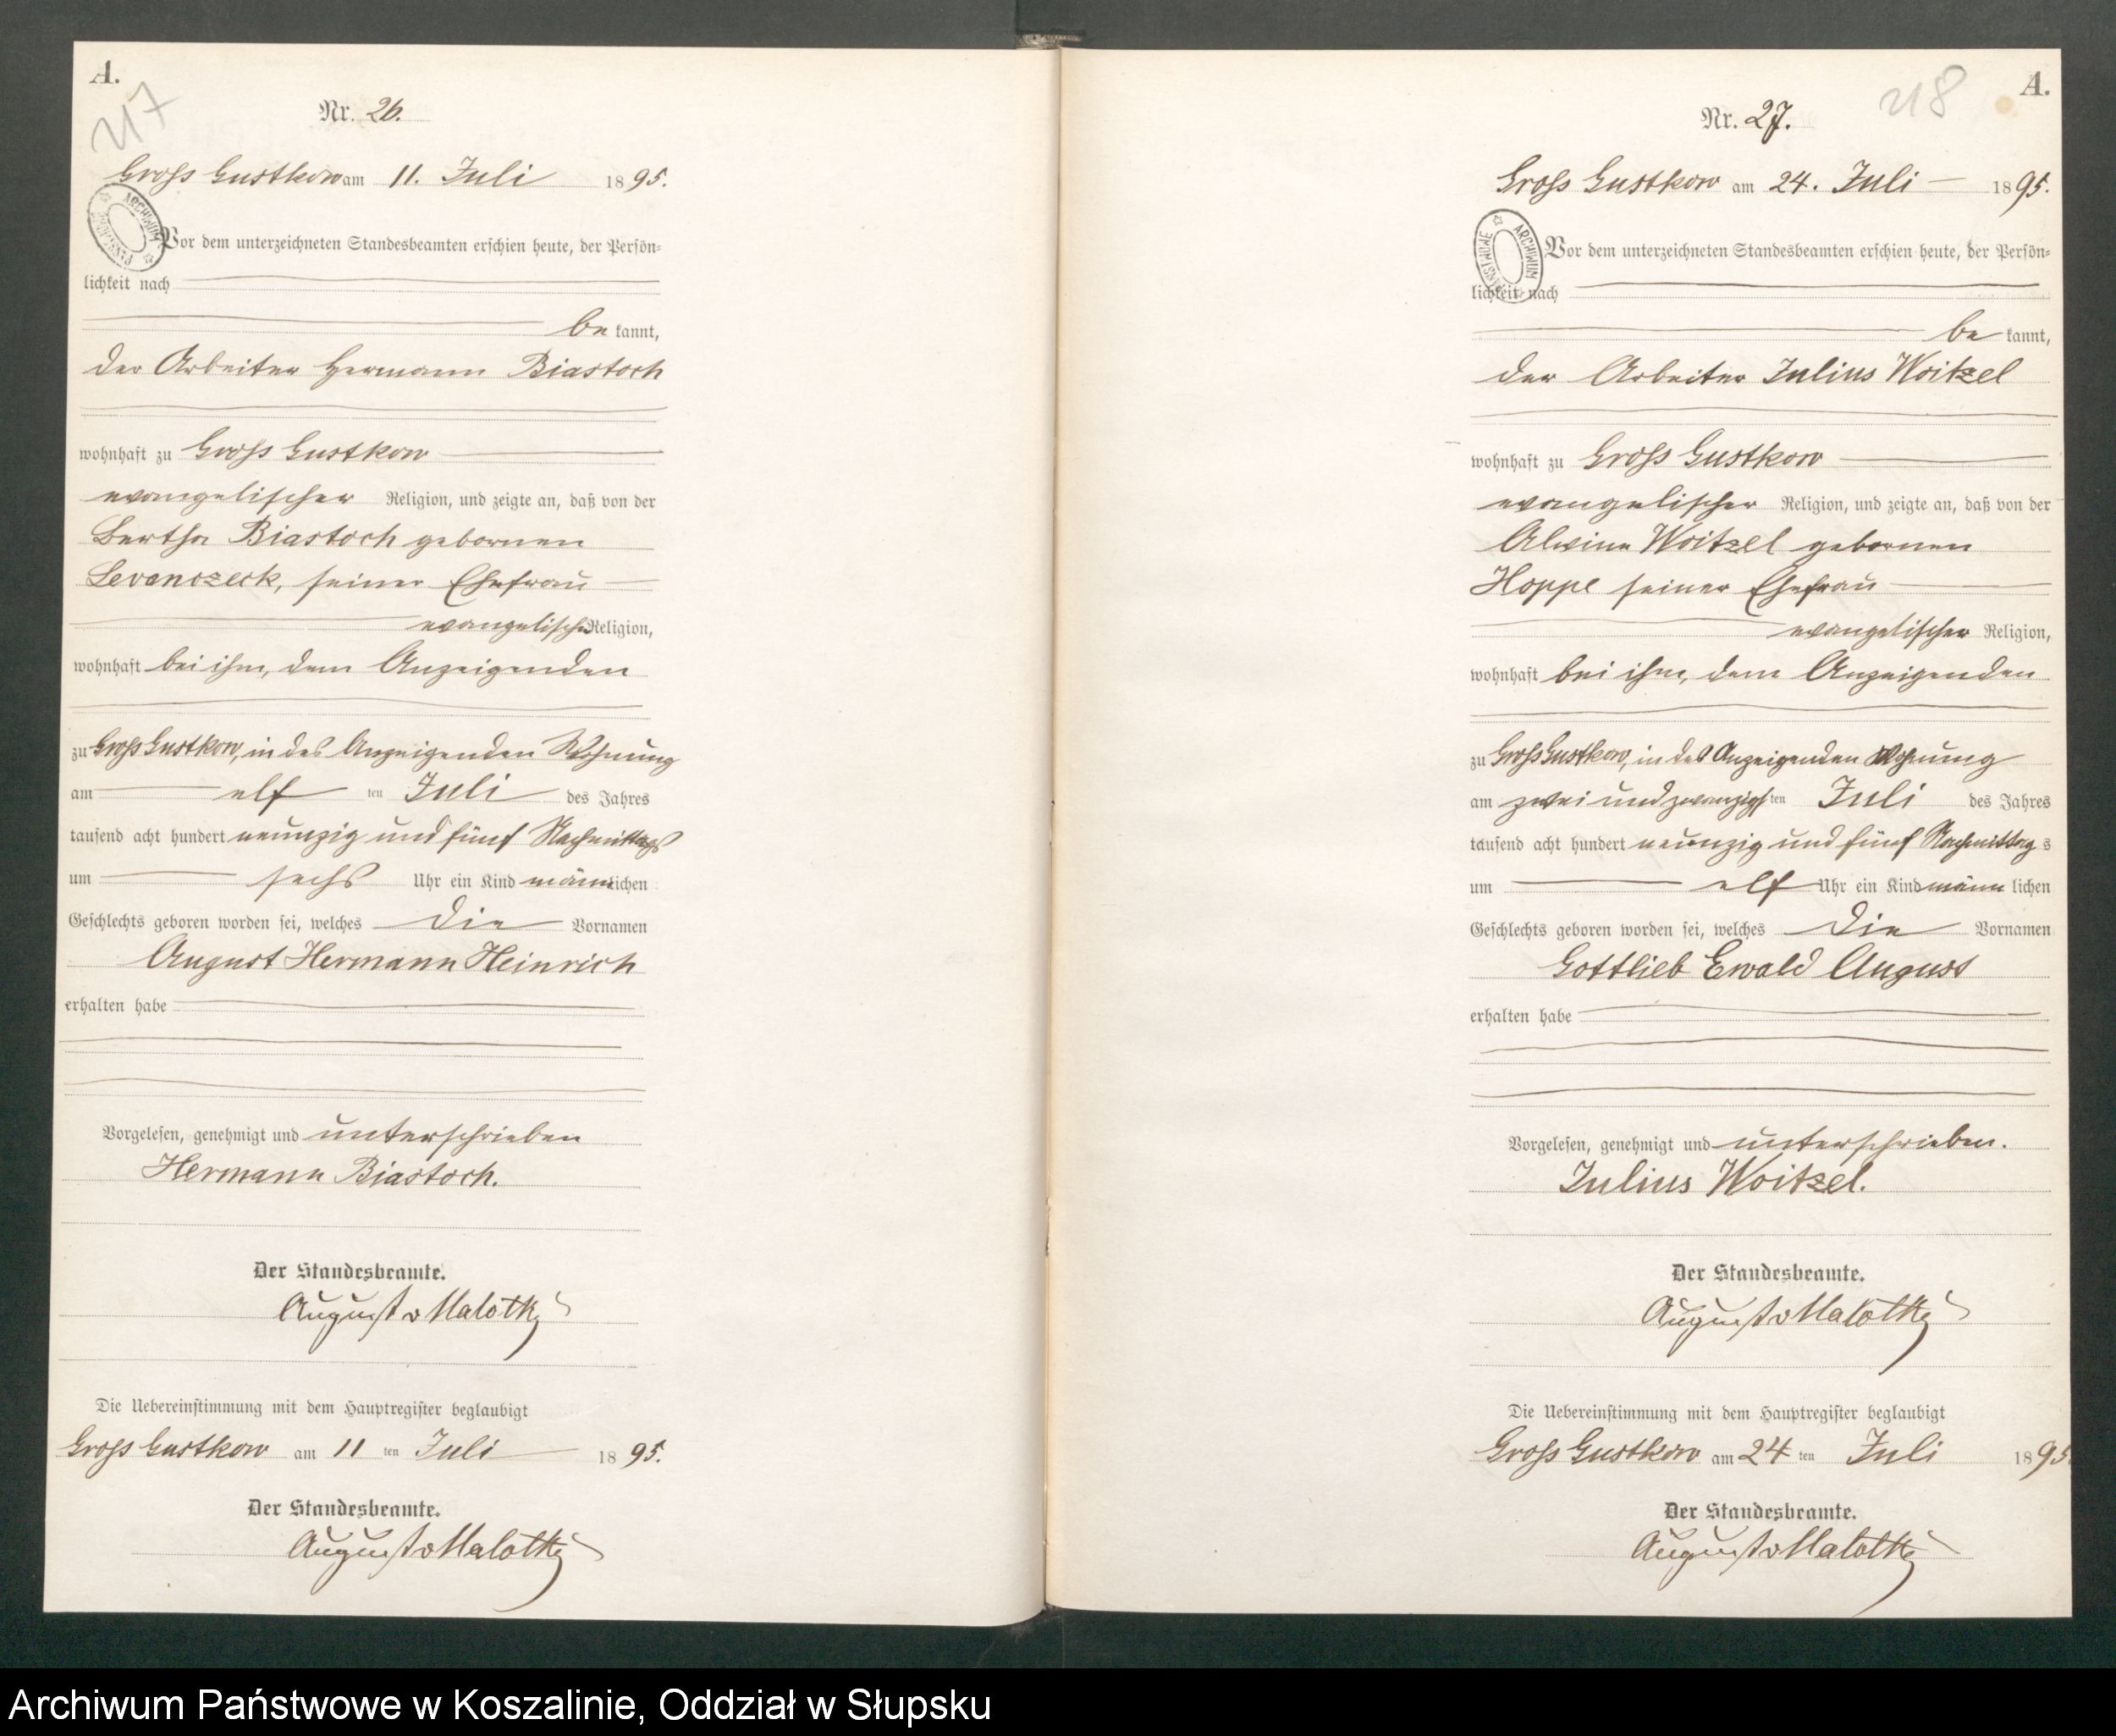 A.
217
Nr. 26.
Gross Gustkow am 11. Juli 1895.
ARCHIWUM PAŃSTWOWE
Vor dem unterzeichneten Standesbeamten erschien heute, der Persön-
lichkeit nach
be kannt,
der Arbeiter Hermann Biastoch
wohnhaft zu Gross Gustkow
evangelischer Religion, und zeigte an, daß von der
Bertha Biastoch gebornen
Levenczeck, seiner Ehefrau
evangelischer Religion,
wohnhaft bei ihm, dem Anzeigenden
zu Gross Gustkow, in des Anzeigenden Wohnung
am elf ten Juli des Jahres
tausend acht hundert neunzig und fünf Nachmittags
um sechs Uhr ein Kind männlichen
Geschlechts geboren worden sei, welches die Vornamen
August Hermann Heinrich
erhalten habe
Vorgelesen, genehmigt und unterschrieben
Hermann Biastoch.
Der Standesbeamte.
August v Malotky
Die Uebereinstimmung mit dem Hauptregister beglaubigt
Gross Gustkow am 11 ten Juli 1895.
Der Standesbeamte.
August v Malotky
A.
218
Nr. 27.
Gross Gustkow am 24. Juli 1895.
ARCHIWUM PAŃSTWOWE
Vor dem unterzeichneten Standesbeamten erschien heute, der Persön-
lichkeit nach
be kannt,
der Arbeiter Julius Woitzel
wohnhaft zu Gross Gustkow
evangelischer Religion, und zeigte an, daß von der
Alwine Woitzel gebornen
Hoppe seiner Ehefrau
evangelischer Religion,
wohnhaft bei ihm, dem Anzeigenden
zu Gross Gustkow, in des Anzeigenden Wohnung
am zwei und zwanzigsten Juli des Jahres
tausend acht hundert neunzig und fünf Nachmittags
um elf Uhr ein Kind männlichen
Geschlechts geboren worden sei, welches die Vornamen
Gottlieb Ewald August
erhalten habe
Vorgelesen, genehmigt und unterschrieben.
Julius Woitzel.
Der Standesbeamte.
August v Malotky
Die Uebereinstimmung mit dem Hauptregister beglaubigt
Gross Gustkow am 24 ten Juli 1895
Der Standesbeamte.
August v Malotky
Archiwum Państwowe w Koszalinie, Oddział w Słupsku